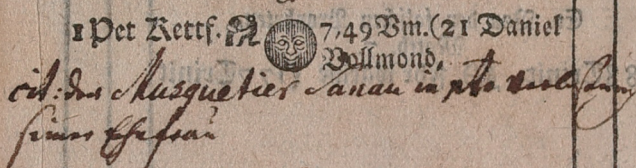 1 Pet Kettf. 7,49 Vm. (21 Daniel
Vollmond,
cit: der Musquetier Sanau in pto
seiner Ehefrau